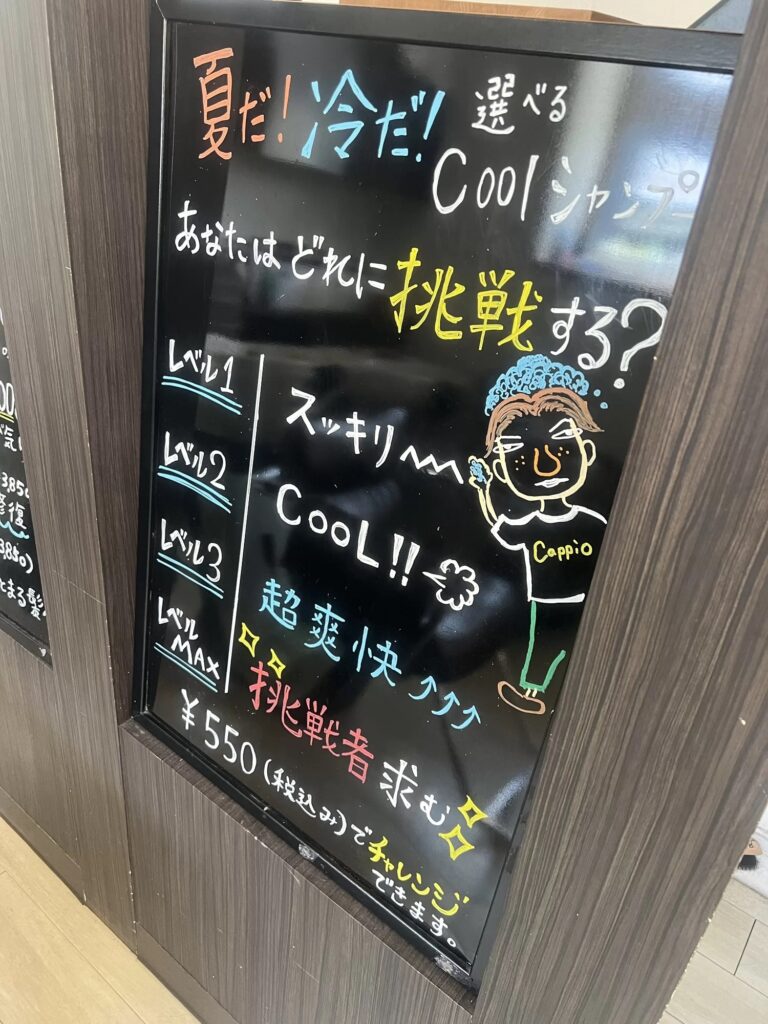 夏だ! 冷だ! 選べる
Coolシャンプー
あなたはどれに挑戦する?
レベル1 スッキリ〜
レベル2 COOL!!
レベル3 超爽快↑↑↑
レベルMAX 挑戦者求む
Cappio
¥550(税込み)でチャレンジ
できます。
修復